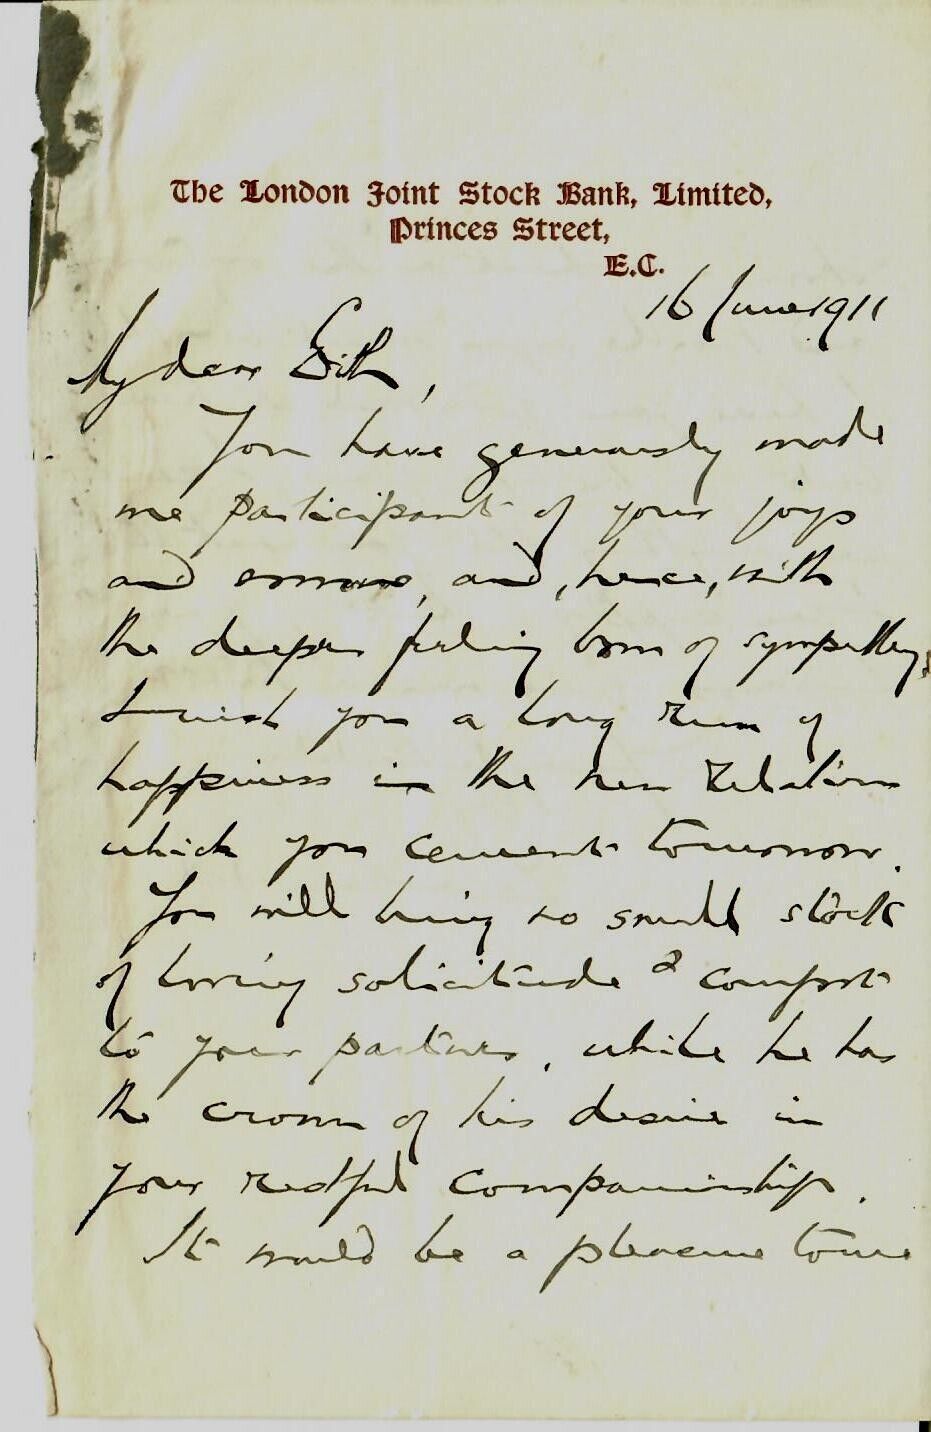 The London Joint Stock Bank, Limited,
Princes Street,
E.C.
16 June 1911
My dear Edith,
You have generously made
me participant of your joys
and sorrows, and, hence, with
the deeper feeling born of sympathy,
I wish you a long run of
happiness in the new relation
which you cement tomorrow.
You will bring no small stock
of loving solicitude & comfort
to your partner, while he has
the crown of his desire in
your companionship.
It would be a pleasure to me